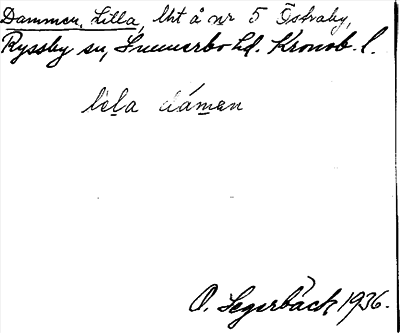 Dammen, Lilla, lht å nr 5 Östraby,
Ryssby sn, Sunnerbo hd. Kronob. l.
lèla dámen
O. Segerbäck 1936.